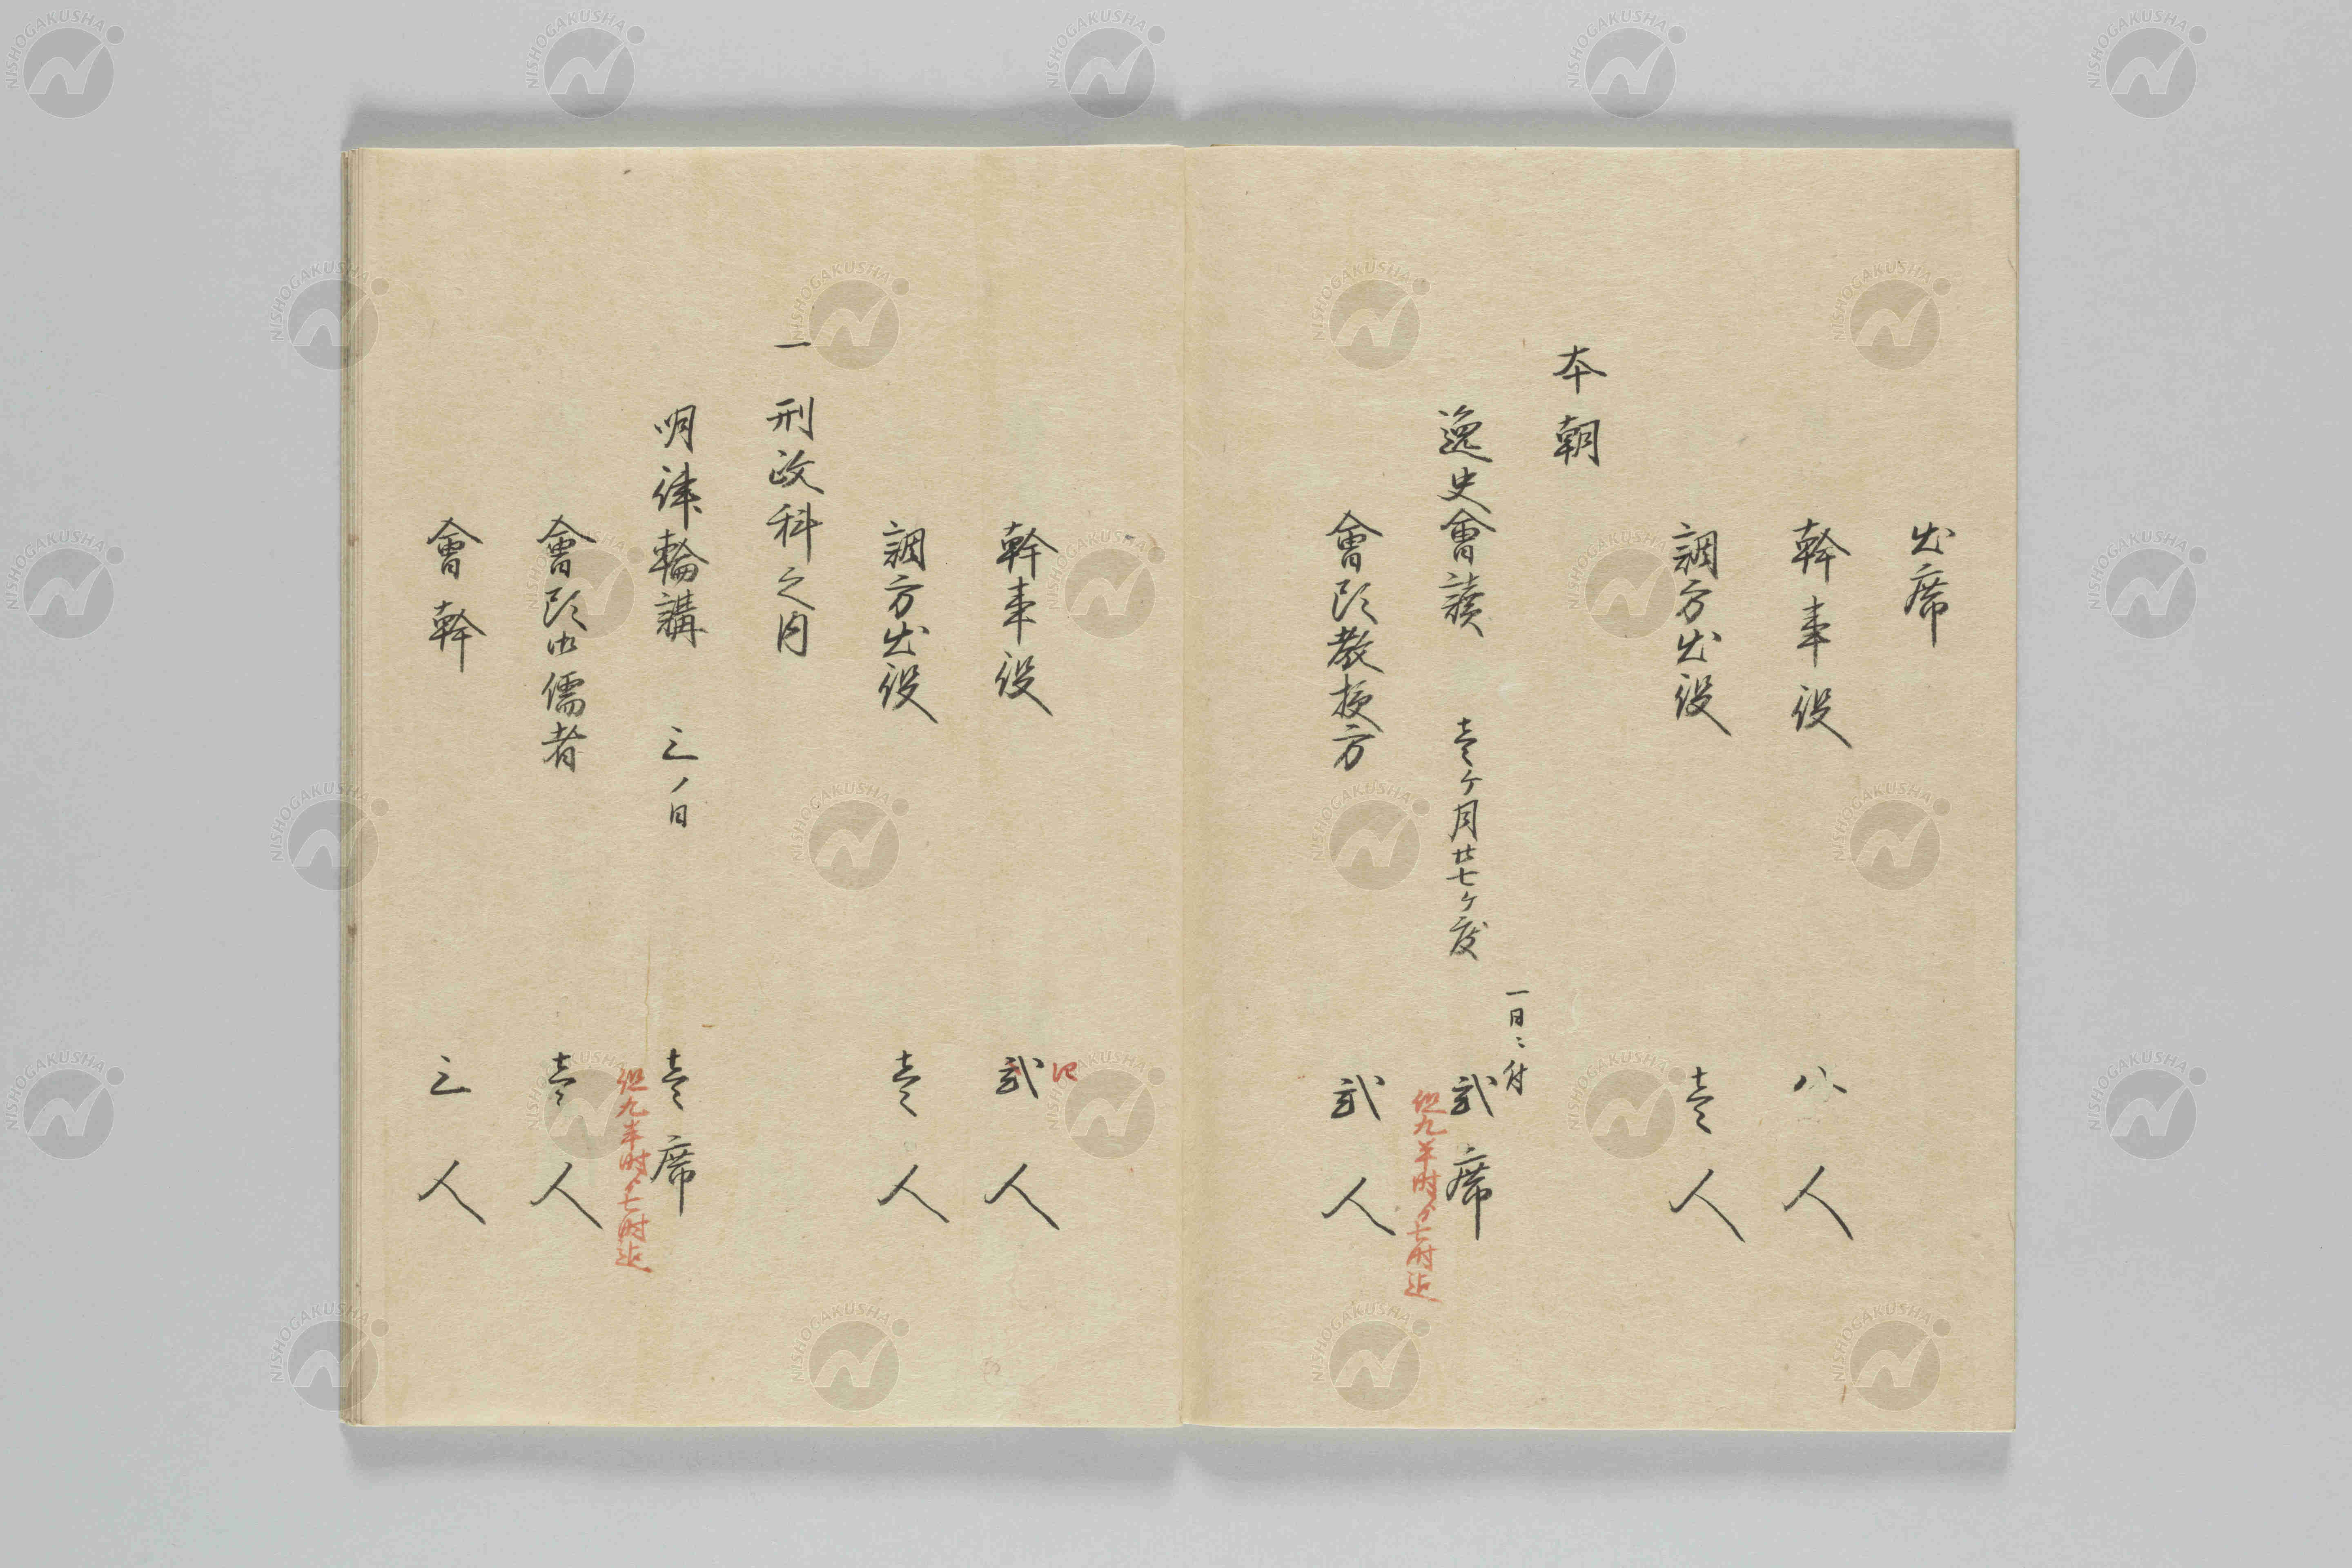 出席
幹事役 八人
調方出役 壱人
本朝
一日ニ付
逸史會讀 壱ヶ月廿七ヶ度 弐席
但九半時ゟ七時迄
會頭教授方 弐人
幹事役 弐人
調方出役 壱人
一刑政科之内
明律輪講 三ノ日 壱席
但九半時ゟ七時迄
會頭御儒者 壱人
會幹 三人
NISHOGAKUSHA